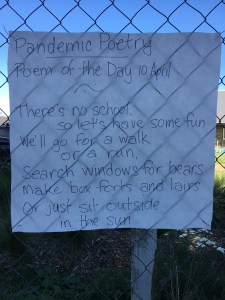 Pandemic Poetry
Poem of the Day 10 April
There's no school
so let's have some fun
We'll go for a walk
or a run.
Search windows for bears
Make box forts and lairs
Or just sit outside
in the sun